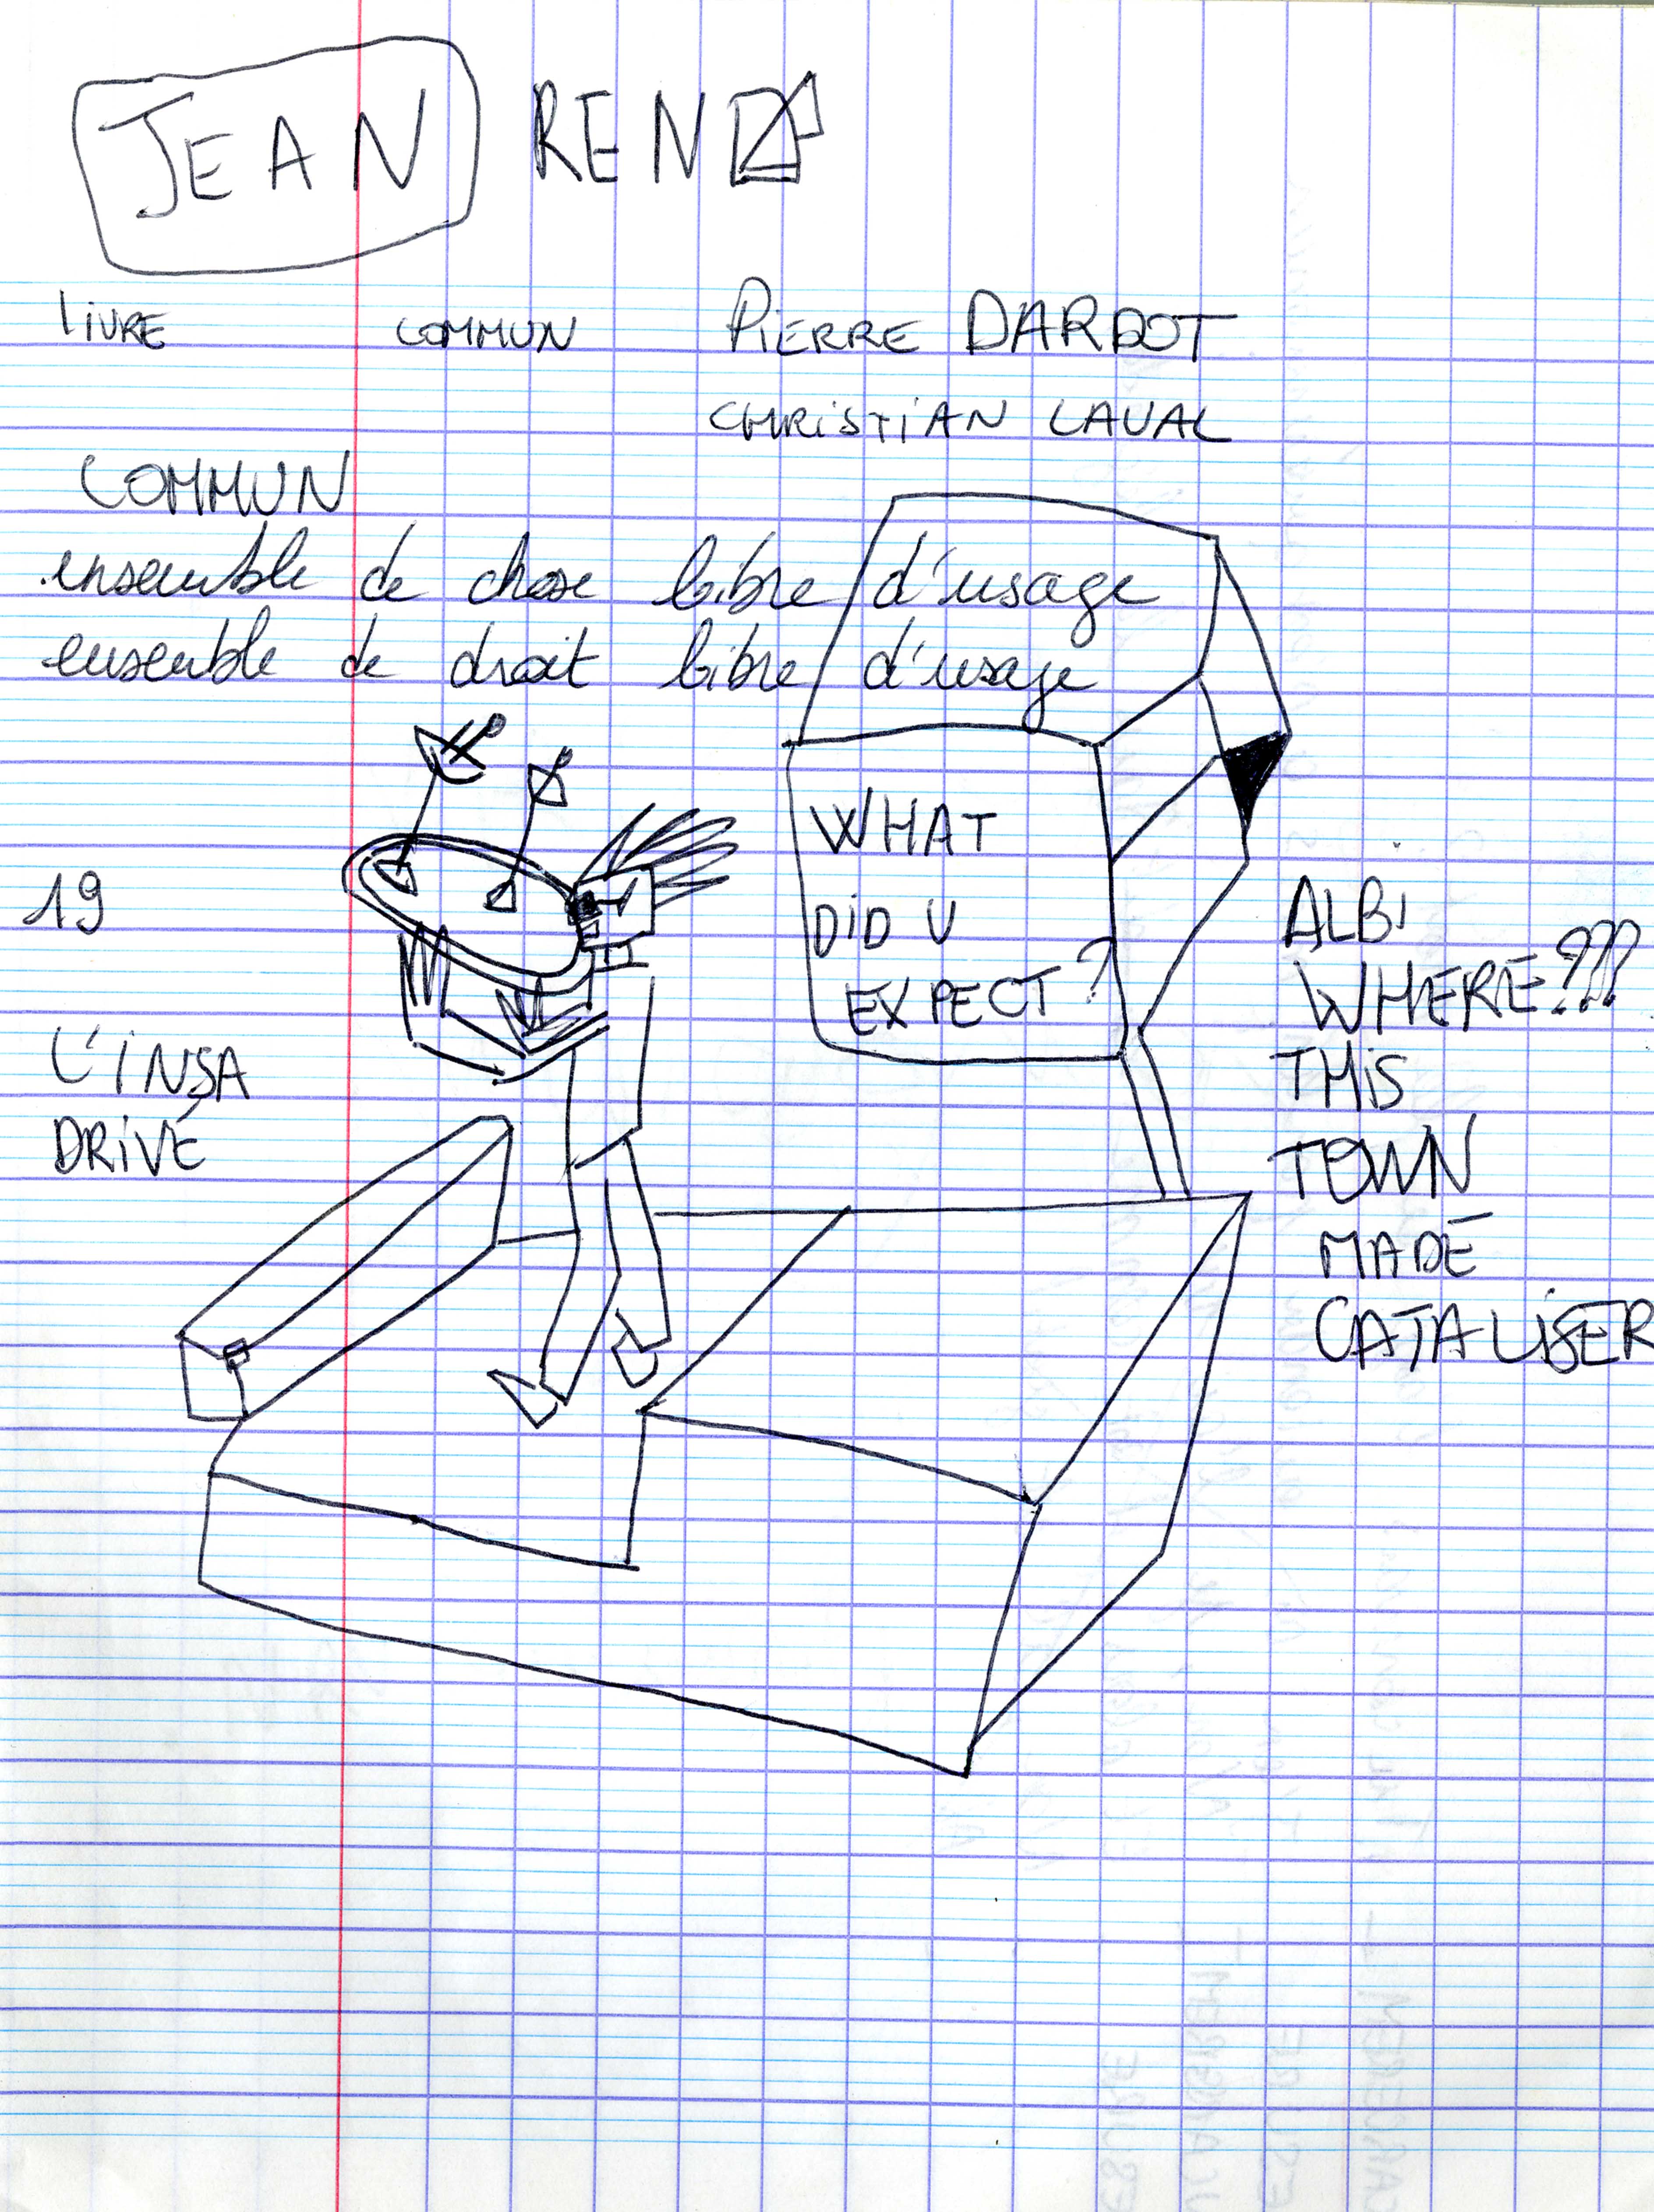 JEAN REN
LIVRE COMMUN PIERRE DARDOT
CHRISTIAN LAVAL
COMMUN
ensemble de chose libre d'usage
ensemble de droit libre d'usage
WHAT
DID U
EXPECT ?
19
L'INSA
DRIVE
ALBI
WHERE ???
THIS
TOWN
MADE
CATALISER